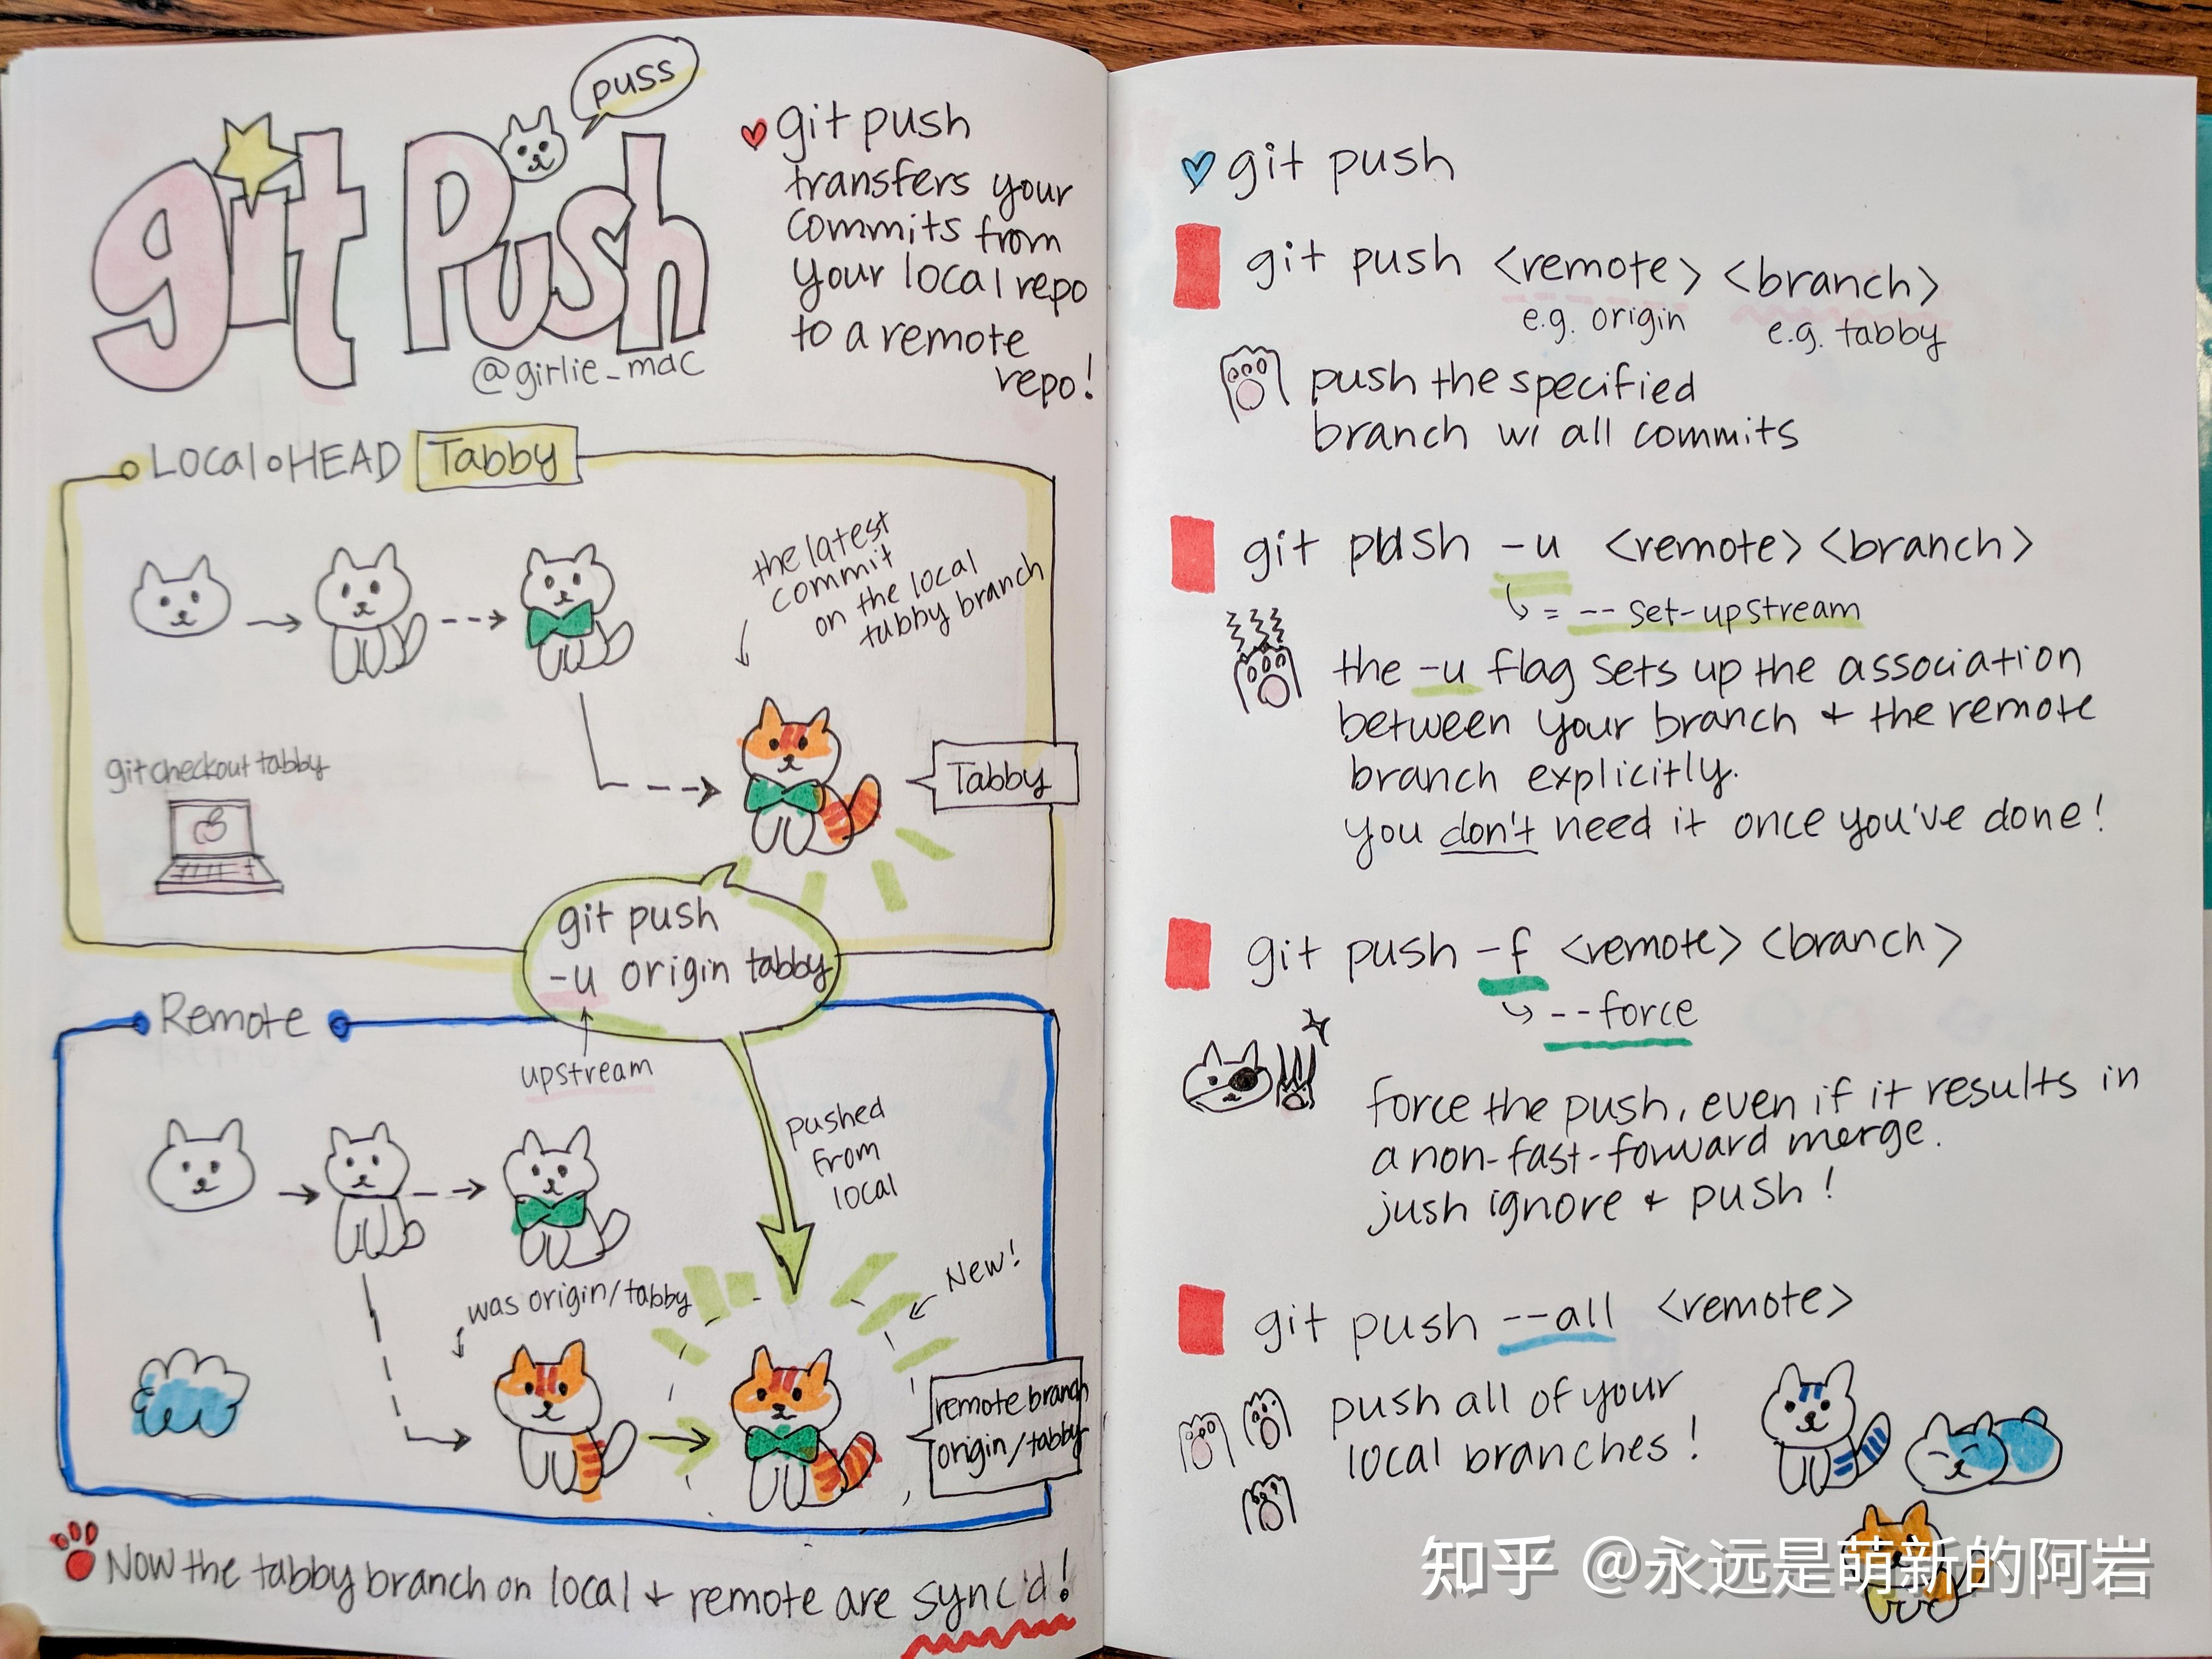 puss
git Push
@girlie_mac
git push
transfers your
commits from
your local repo
to a remote
repo!
Local HEAD Tabby
the latest
commit
on the local
tabby branch
git checkout tabby
Tabby
git push
-u origin tabby
upstream
Remote
pushed
from
local
New!
was origin/tabby
remote branch
origin/tabby
Now the tabby branch on local + remote are sync'd!
git push
git push <remote> <branch>
e.g. origin
e.g. tabby
push the specified
branch w/ all commits
git push -u <remote> <branch>
= -- set-upstream
the -u flag sets up the association
between your branch + the remote
branch explicitly.
you don't need it once you've done!
git push -f <remote> <branch>
--force
force the push, even if it results in
a non-fast-forward merge.
jush ignore + push!
git push --all <remote>
push all of your
local branches!
知乎 @永远是萌新的阿岩